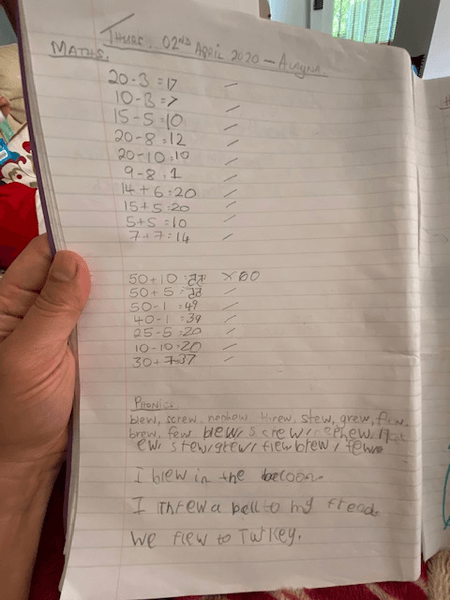 THURS. 02ND APRIL 2020 –
MATHS.
20 - 3 = 17 /
10 - 3 = 7 /
15 - 5 = 10 /
20 - 8 = 12 /
20 - 10 = 10 /
9 - 8 = 1 /
14 + 6 = 20 /
15 + 5 = 20 /
5 + 5 = 10 /
7 + 7 = 14 /
50 + 10 = × 60
50 + 5 = /
50 - 1 = 49 /
40 - 1 = 39 /
25 - 5 = 20 /
10 - 10 = 20 /
30 + 7 = 37 /
PHONICS
blew, screw, nephew, threw, stew, grew, flew,
brew, few blew, screw, nephew,
ew, stew, grew, flew brew, few
I blew in the baloon
I threw a ball to my freads
We flew to Turkey.